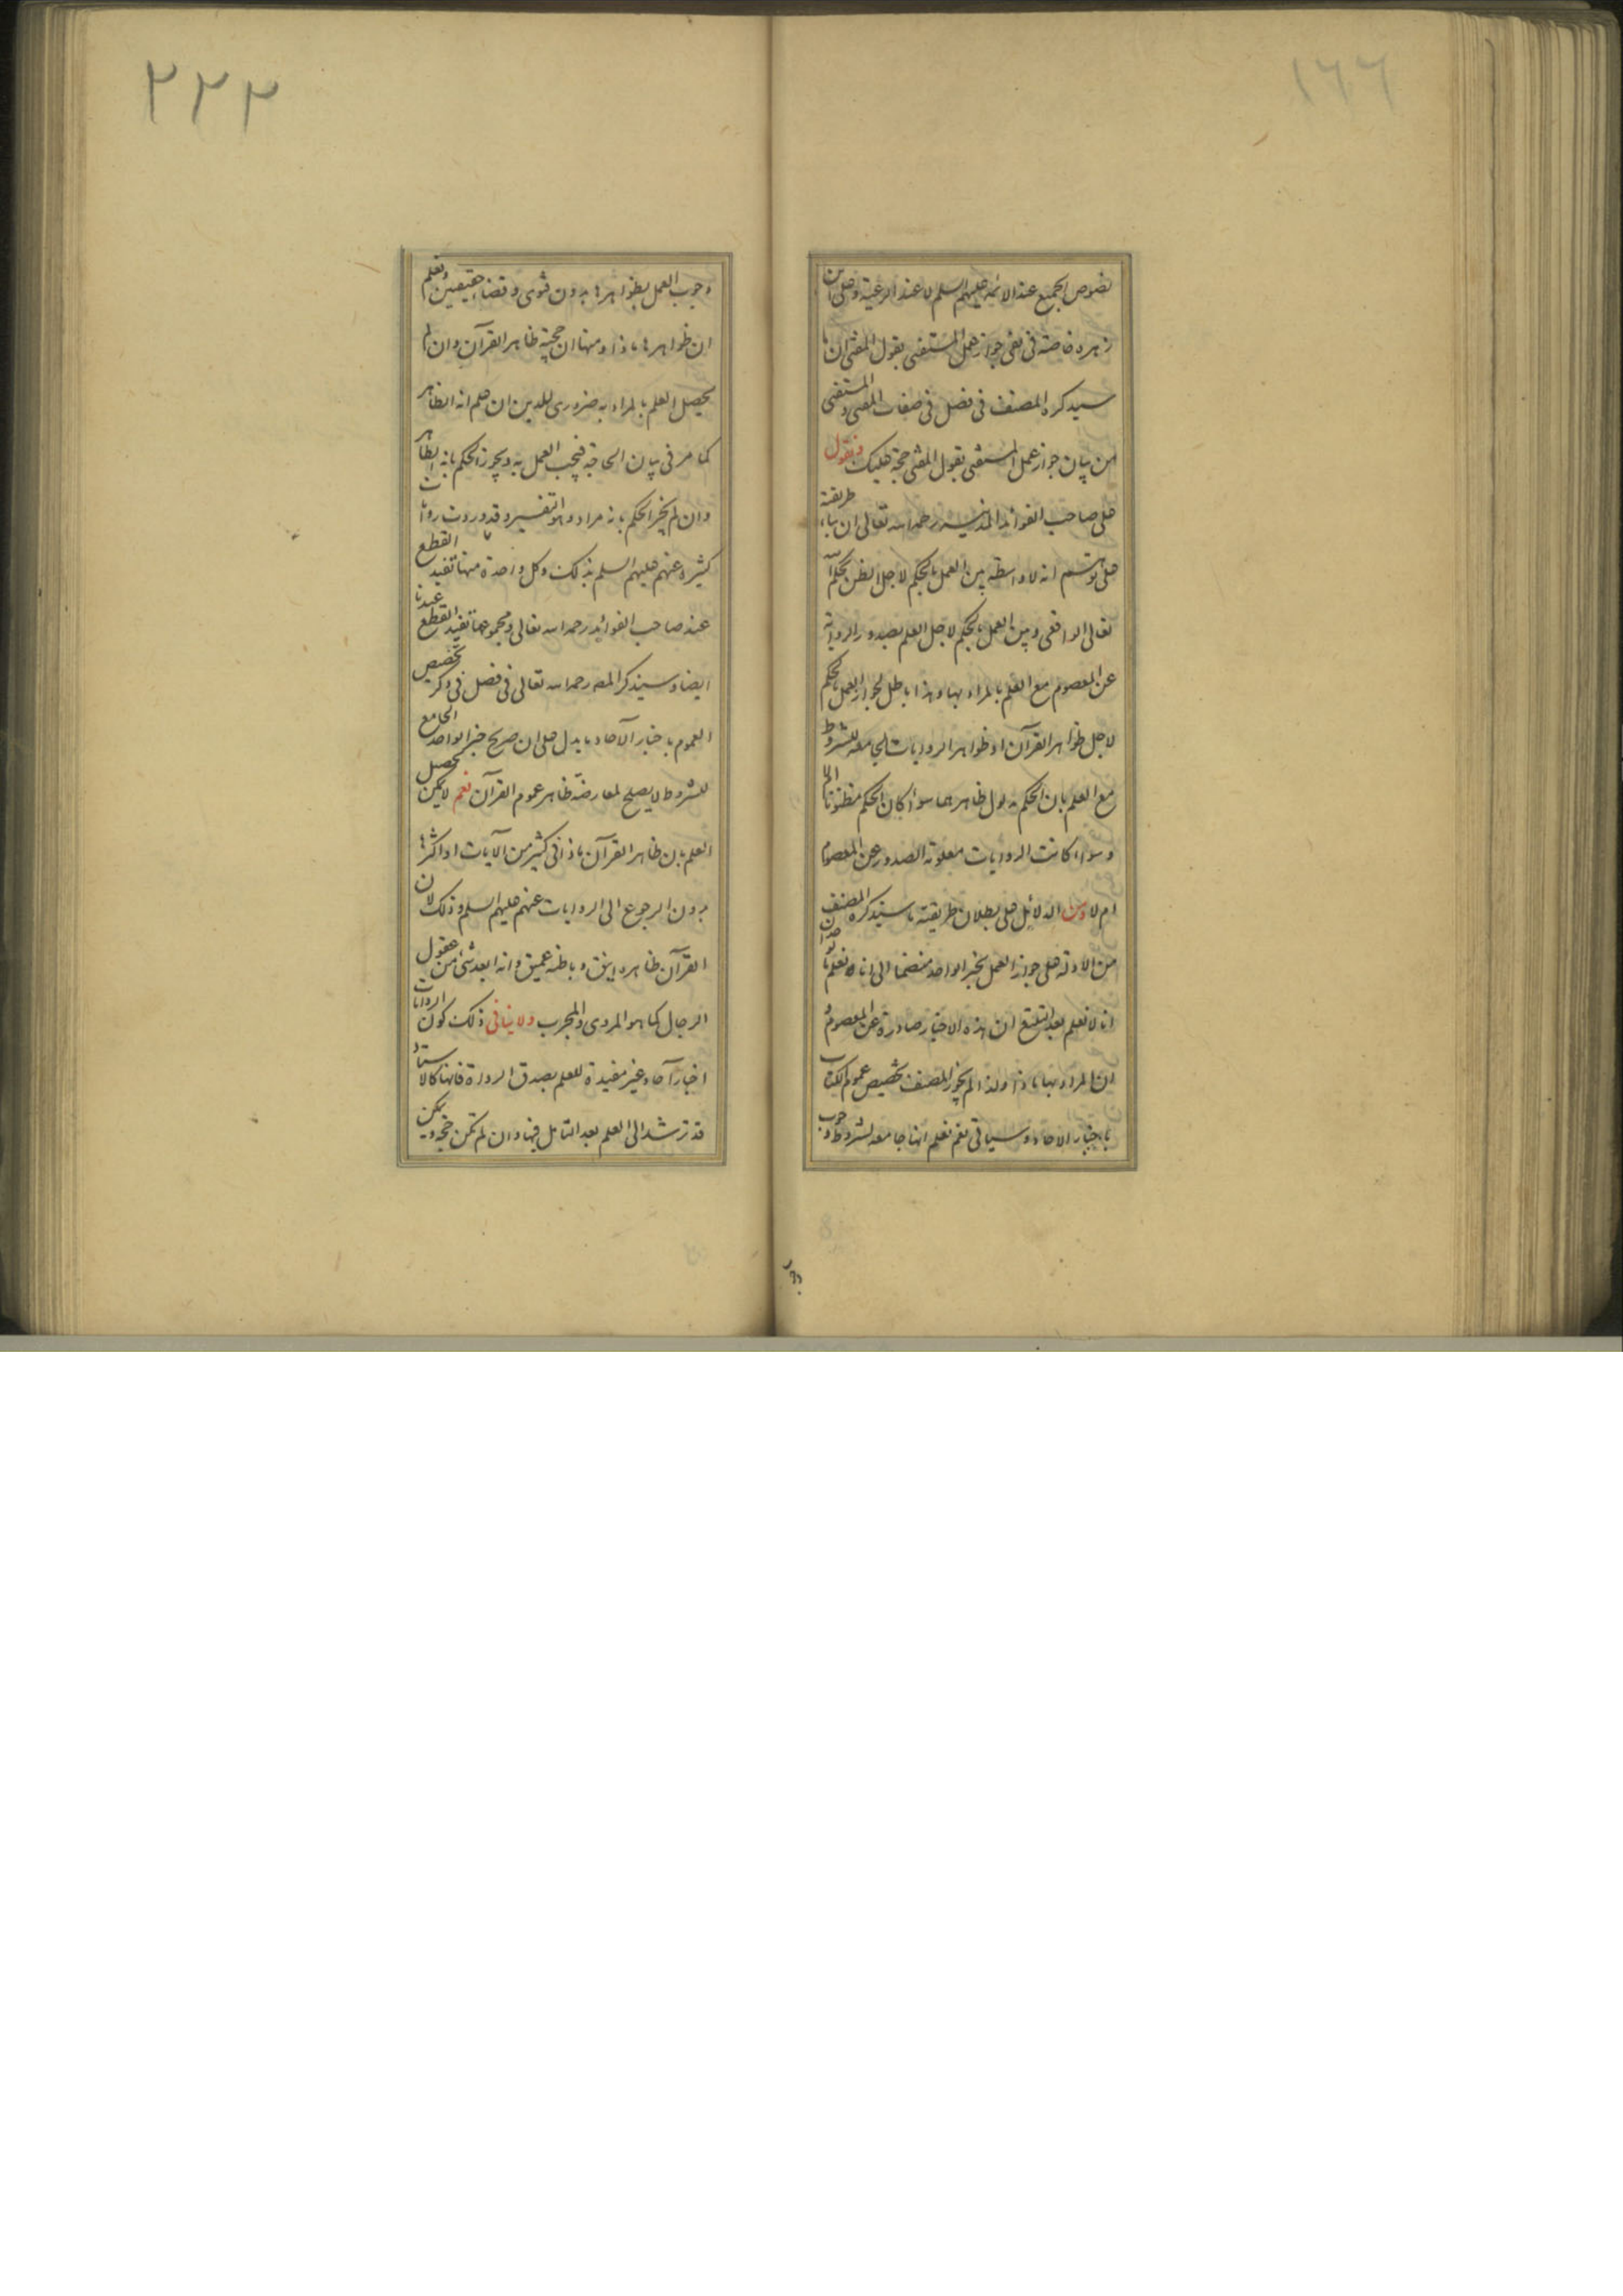 ١٦٦
نصوص الجميع عند الائمة عليهم السلم لا عند الرعية وعلى ابن
زهره خاصة فى نفى جواز عمل المستفتى بقول المفتى ان ما
سيذكره المصنف فى فصل فى صفات المفتى والمستفتى
من بيان جواز عمل المستفتى بقول المفتى حجة عليك ونقول
على صاحب الفوائد المدنية رحمه الله تعالى ان بناء طريقته
على توهم انه لا واسطة بين العمل بالحكم لاجل الظن بحكم الله
تعالى الواقعى وبين العمل بالحكم لاجل العلم بصدور الرواية
عن المعصوم مع العلم بالمراد بها وهذا باطل لجواز العمل بالحكم
لاجل ظواهر القرآن او ظواهر الروايات الجامعة للشروط
مع العلم بان الحكم مدلول ظاهرهما سواء كان الحكم مظنونا ام لا
وسواء كانت الروايات معلومة الصدور عن المعصوم
ام لا ومن الدلائل على بطلان طريقته ما سيذكره المصنف
من الادلة على جواز العمل بخبر الواحد منضما الى انا نعلم
انا لا نعلم بعد التتبع ان هذه الاخبار صادرة عن المعصوم
ان المراد بها ماذا ولذا لم يجوز المصنف تخصيص عموم الكتاب
باخبار الاحاد وسياتى نعم نعلم انها جامعة لشروط وجوب
٢٢٣
وجوب العمل بظواهرها بدون فتوى وقضاء حقيقيين ونعلم
ان ظواهرها ماذا ومنها ان حجية ظاهر القرآن وان لم
يحصل العلم بالمراد به ضرورى للدين ان علم انه الظاهر
كما مر فى بيان الحاجة فيجب العمل به ويجوز الحكم بانه الظاهر
وان لم يجز الحكم بانه مراد وهو التفسير وقد وردت روايات
كثيرة عنهم عليهم السلم بذلك وكل واحدة منها تفيد القطع
عند صاحب الفوائد رحمه الله تعالى ومجموعها تفيد القطع عندنا
ايضا وسيذكر المصـ رحمه الله تعالى فى فصل فى ذكر تخصيص
العموم باخبار الآحاد ما يدل على ان صريح خبر الواحد الجامع
للشروط لا يصلح لمعارضة ظاهر عموم القرآن نعم لا يمكن تحصيل
العلم بان ظاهر القرآن ماذا فى كثير من الآيات او اكثرها
بدون الرجوع الى الروايات عنهم عليهم السلم وذلك لان
القرآن ظاهره انيق وباطنه عميق وانه ابعد شئ من عقول
الرجال كما هو المروى والمجرب ولا ينافى ذلك كون الروايات
اخبار آحاد غير مفيدة للعلم بصدق الرواة فانها كالاستاد
قد ترشد الى العلم بعد التامل فيها وان لم تكن حجة ويمكن